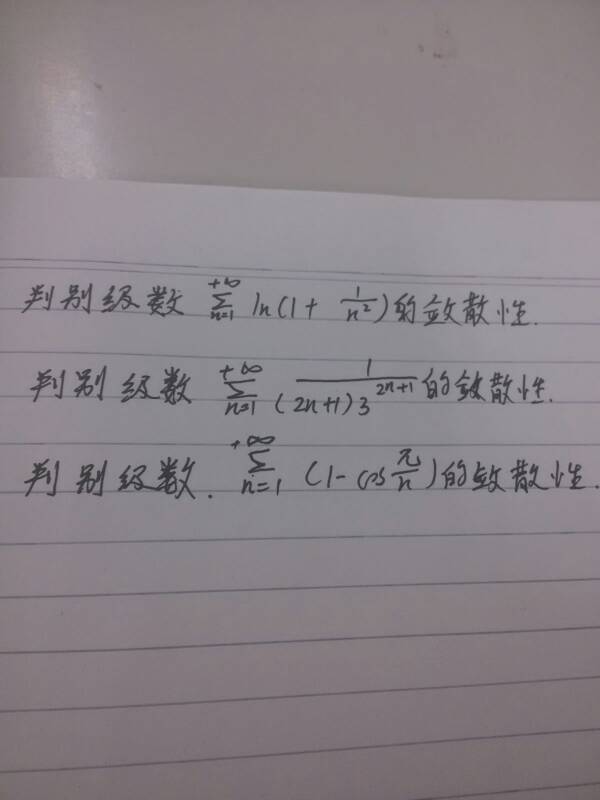 判别级数 $\sum_{n=1}^{+\infty} \ln(1+\frac{1}{n^2})$的敛散性.
判别级数 $\sum_{n=1}^{+\infty} \frac{1}{(2n+1)3^{2n+1}}$的敛散性.
判别级数. $\sum_{n=1}^{+\infty} (1-\cos\frac{\pi}{n})$的敛散性.